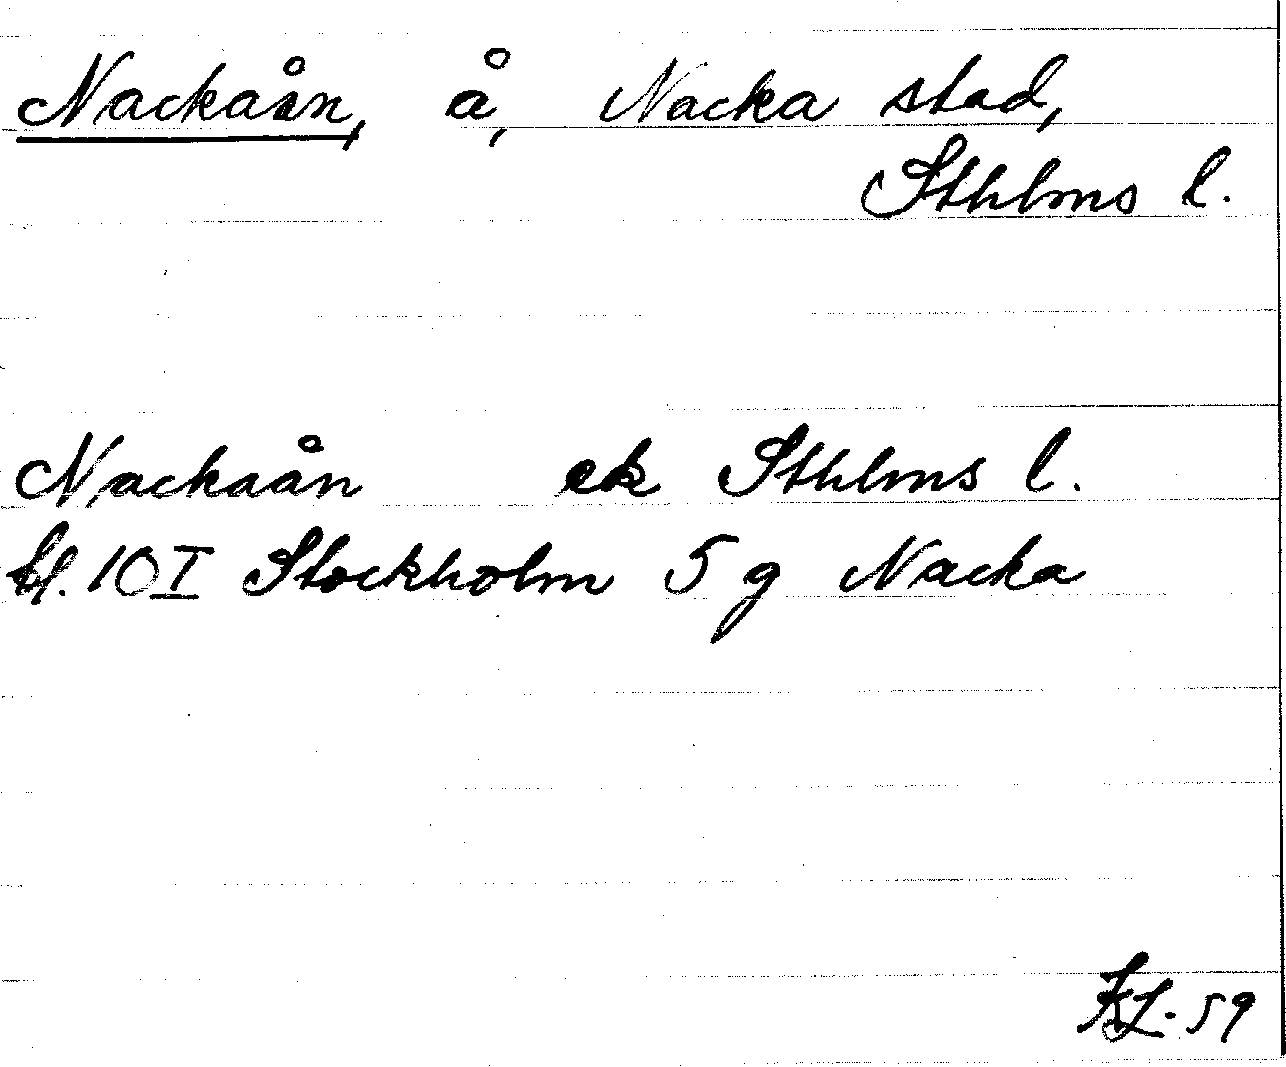 Nackaån, å, Nacka stad,
Sthlms l.
Nackaån ek Sthlms l.
bl. 10 I Stockholm 5 g Nacka
KL-59